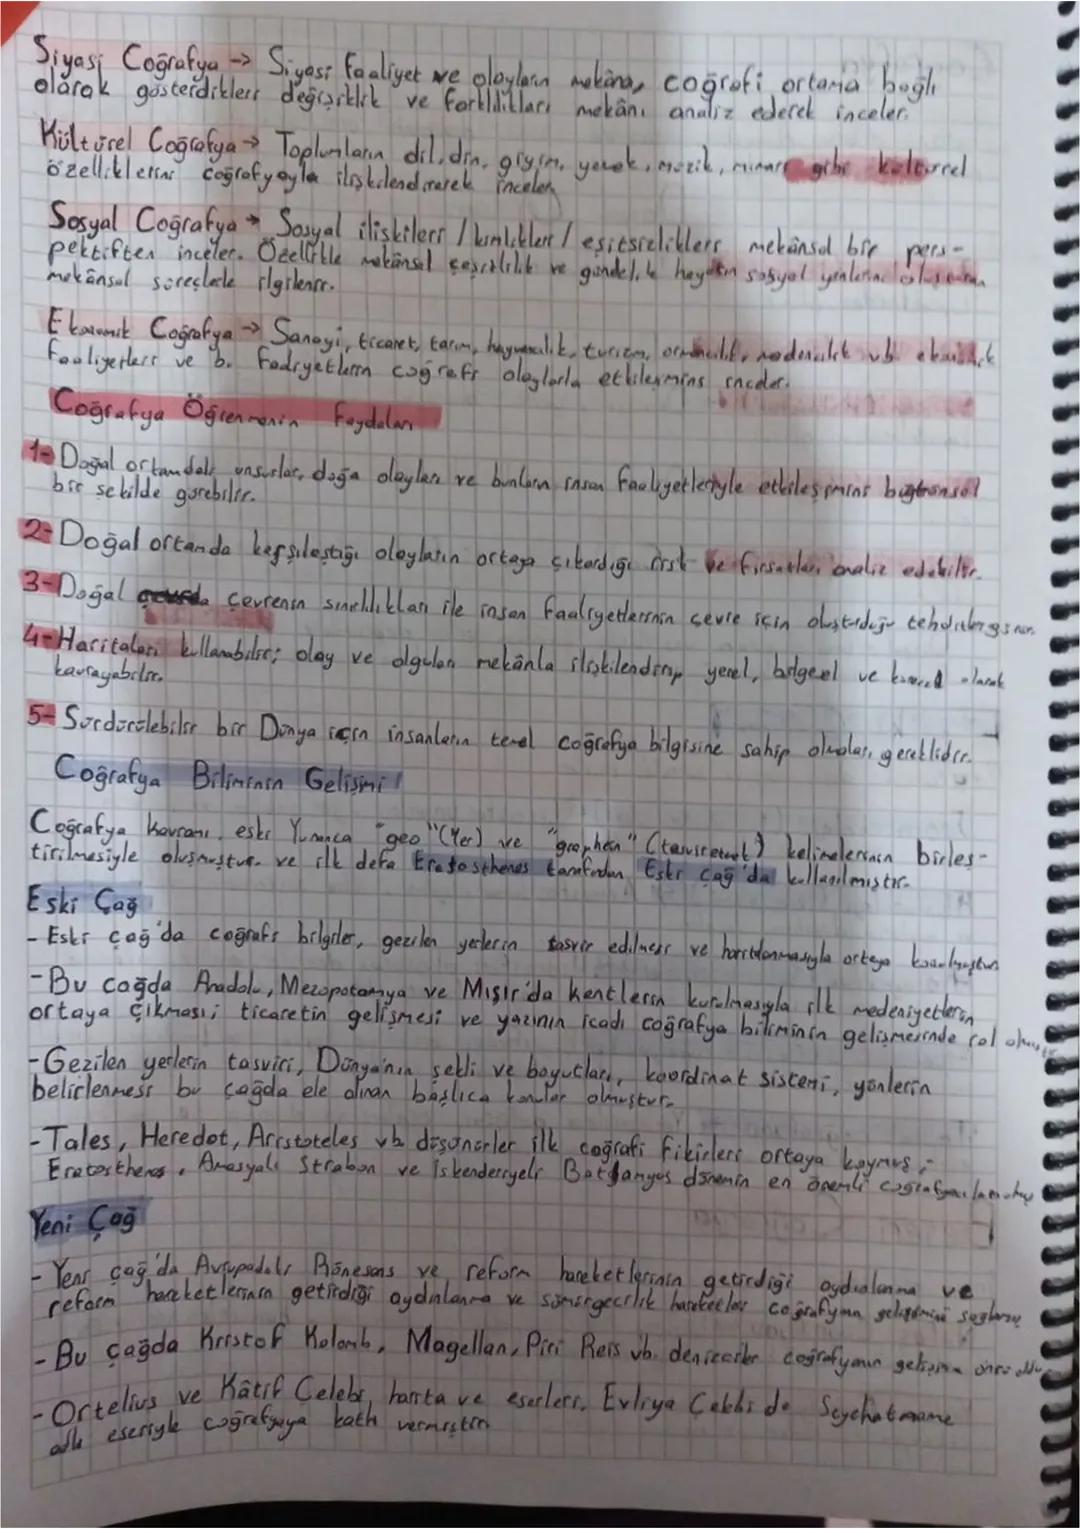 Siyasi Coğrafya → Siyasi faaliyet ve olayların mekâna, coğrafi ortama bağlı
olarak gösterdikleri değişiklik ve farklılıkları mekânı analiz ederek inceler.
Kültürel Coğrafya → Toplumların dil, din, giyim, yemek, müzik, mimari gibi kültürel
özelliklerini coğrafyayla ilişkilendirerek inceler
Sosyal Coğrafya → Sosyal ilişkileri / kimlikleri / eşitsizlikleri mekânsal bir pers-
pektiften inceler. Özellikle mekânsal çeşitlilik ve gündelik hayatın sosyal yönlerini oluşturan
mekânsal süreçlerle ilgilenir.
Ekonomik Coğrafya → Sanayi, ticaret, tarım, hayvancılık, turizm, ormancılık, madencilik vb. ekonomik
faaliyetleri ve b. faaliyetlerin coğrafi olaylarla etkileşimini inceler.
Coğrafya Öğrenmenin Faydaları
1- Doğal ortamdaki unsurlar, doğa olayları ve bunların insan faaliyetleriyle etkileşimini bütünsel
bir şekilde görebilir.
2- Doğal ortamda karşılaştığı olayların ortaya çıkardığı risk ve fırsatları analiz edebilir.
3- Doğal çevrenin sınırlılıkları ile insan faaliyetlerinin çevre için oluşturduğu tehditler
4- Haritaları kullanabilir; olay ve olguları mekânla ilişkilendirip yerel, bölgesel ve küresel olarak
kavrayabilir.
5- Sürdürülebilir bir Dünya için insanların temel coğrafya bilgisine sahip olmaları gereklidir.
Coğrafya Biliminin Gelişimi
Coğrafya kavramı, eski Yunanca "geo" (Yer) ve "graphein" (tasvir etmek) kelimelerinin birleş-
tirilmesiyle oluşmuştur. ve ilk defa Eratosthenes tarafından Eski çağ'da kullanılmıştır.
Eski Çağ
- Eski çağ'da coğrafi bilgiler, gezilen yerlerin tasvir edilmesi ve haritalanmasıyla ortaya
- Bu çağda Anadolu, Mezopotamya ve Mısır'da kentlerin kurulmasıyla ilk medeniyetlerin
ortaya çıkması; ticaretin gelişmesi ve yazının icadı coğrafya biliminin gelişmesinde rol olmuştur
- Gezilen yerlerin tasviri, Dünya'nın şekli ve boyutları, koordinat sistemi, yönlerin
belirlenmesi bu çağda ele alınan başlıca konular olmuştur.
- Tales, Heredot, Aristoteles vb düşünürler ilk coğrafi fikirleri ortaya koymuş;
Eratosthenes, Amasyalı Strabon ve İskenderiyeli Batlamyus dönemin en önemli
Yeni Çağ
- Yeni çağ'da Avrupadaki Rönesans ve reform hareketlerinin getirdiği aydınlanma ve
reform hareketlerinin getirdiği aydınlanma ve sömürgecilik hareketleri coğrafyanın gelişimini
- Bu çağda Kristof Kolomb, Magellan, Piri Reis vb. denizciler coğrafyanın
- Ortelius ve Kâtif Çelebi, harita ve eserleri, Evliya Çelebi de Seyehatname
adlı eseriyle coğrafyaya katkı vermiştir.